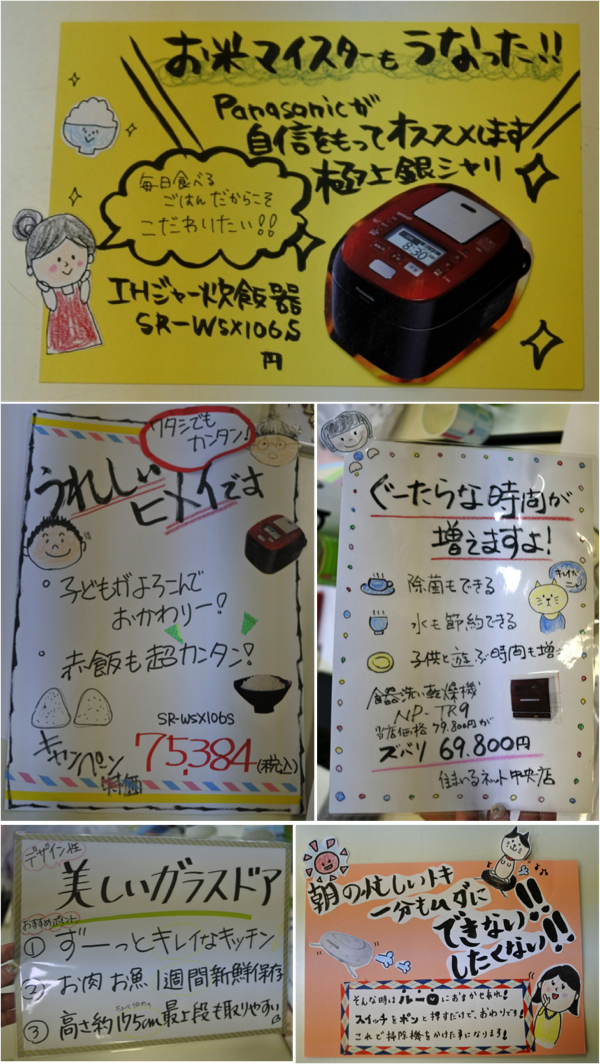 お米マイスターもうなった!!
Panasonicが
自信をもってオススメします
極上銀シャリ
毎日食べる
ごはんだからこそ
こだわりたい!!
8:30
IHジャー炊飯器
SR-WSX106S
円
ワタシでも
カンタン!
うれしい
ヒメイです
・子どもがよろこんで
おかわりー!
・赤飯も超カンタン!
SR-WSX106S
キャンペーン
特価
75,384(税込)
ぐーたらな時間が
増えますよ!
除菌もできる
水も節約できる
子供と遊ぶ時間も増
食器洗い乾燥機
NP-TR9
当店価格79.800円が
ズバリ 69.800円
住まいるネット中央店
デザイン性
美しいガラスドア
おすすめポイント
① ずーっとキレイなキッチン
② お肉 お魚 1週間新鮮保存
③ 高さ約175cm 最上段も取りやすい
朝の忙しいトキ
一分もムダに
できない!!
したくない!!
そんな時はルーロにおまかせあれ!
スイッチをポンと押すだけで、おわりです!
これで掃除機をかけた事になります!